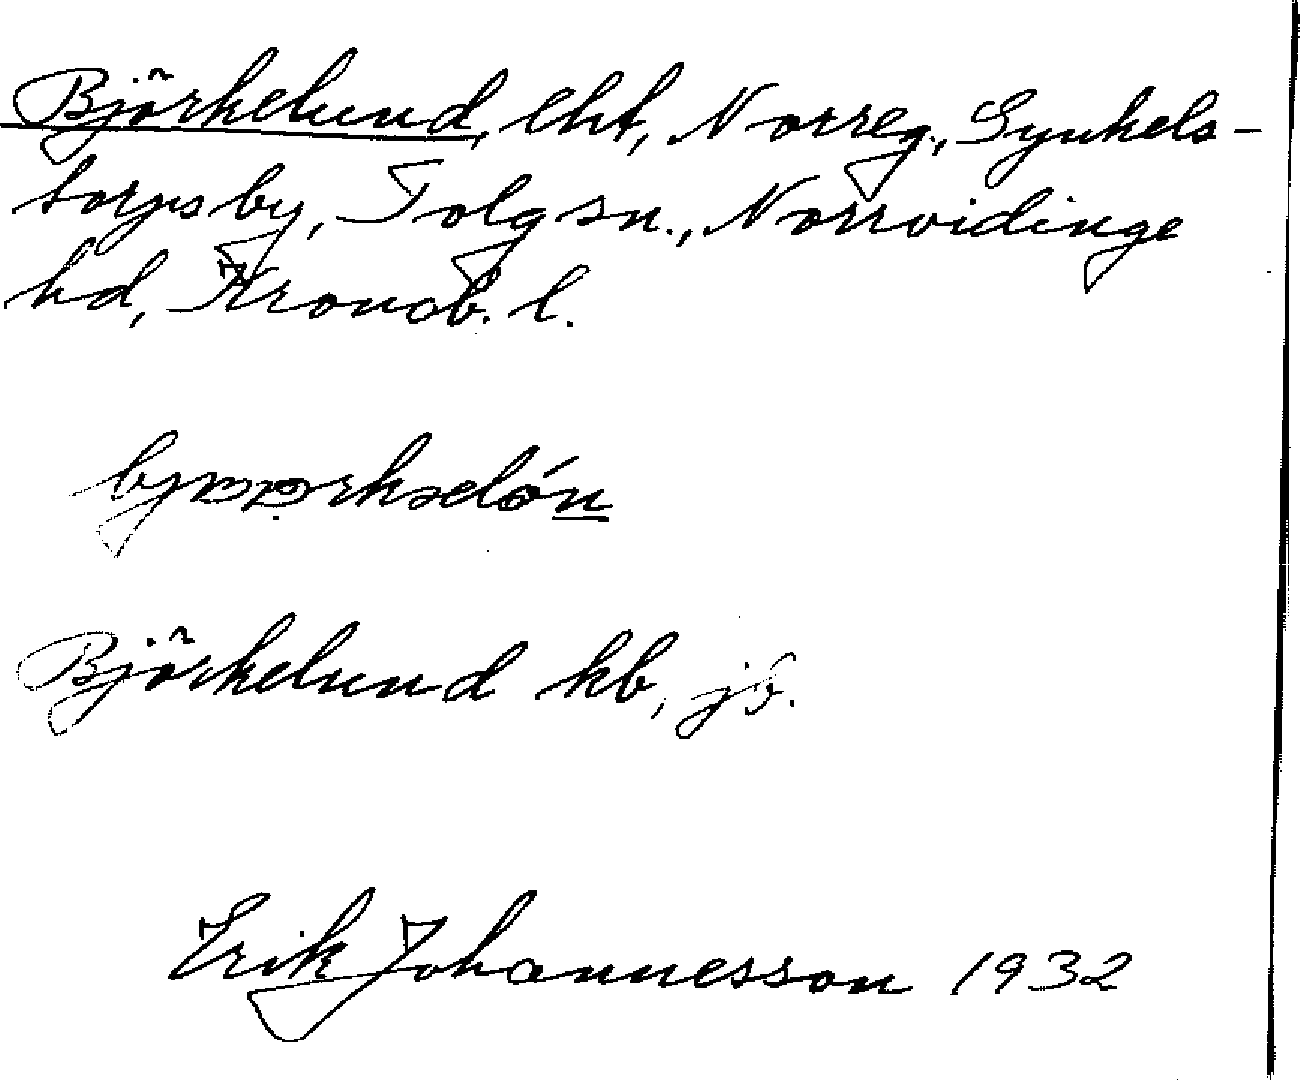 Björkelund, lht, Norreg., Synkels-
torps by, Tolg sn., Norrvidinge
hd, Kronob. l.
Björkelund kb, jb.
Erik Johannesson 1932